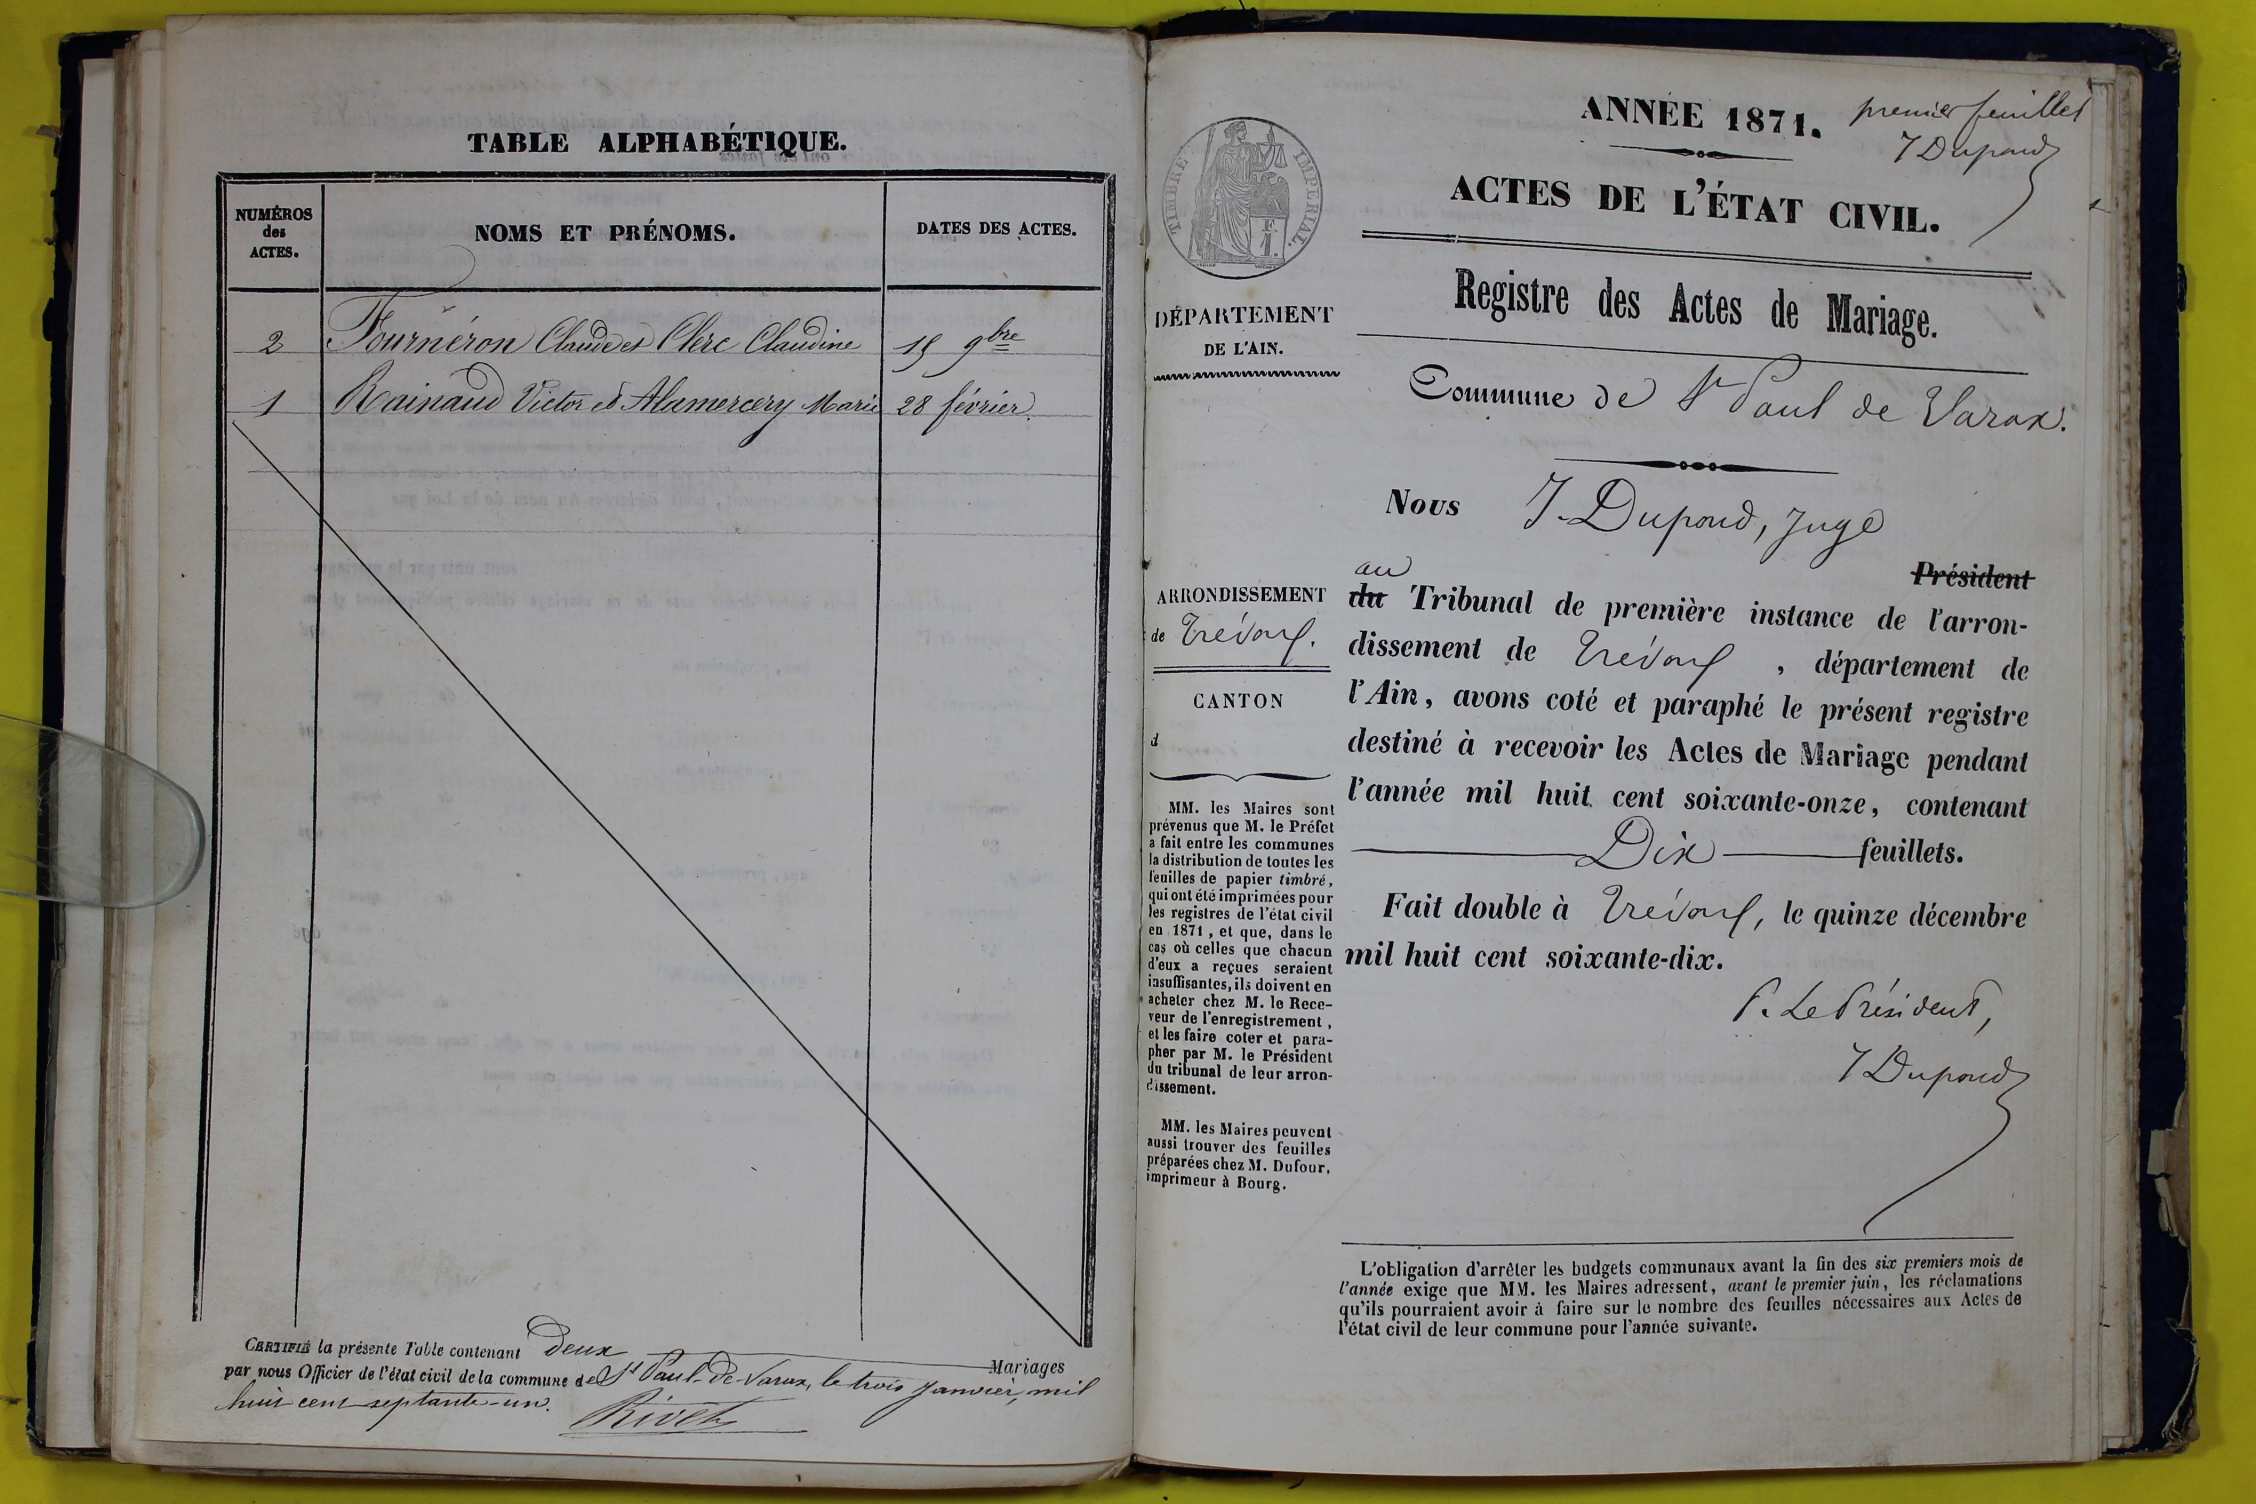 TABLE ALPHABÉTIQUE.
NUMÉROS
des
ACTES.
NOMS ET PRÉNOMS.
DATES DES ACTES.
2 Fournéron Claude et Clerc Claudine 15 9bre
1 Rainaud Victor et Alamercery Marie 28 février.
CERTIFIÉ la présente Table contenant deux Mariages
par nous Officier de l'état civil de la commune de St Paul-de-Varax, le trois janvier, mil
huit cent septante-un.
Rivet
ANNÉE 1871.
premier feuillet
J Dupond
ACTES DE L'ÉTAT CIVIL.
TIMBRE IMPÉRIAL.
F.
1.
Registre des Actes de Mariage.
DÉPARTEMENT
DE L'AIN.
Commune de St Paul de Varax.
Nous J. Dupond, Juge
Président
au
du Tribunal de première instance de l'arron-
dissement de Trévoux, département de
l'Ain, avons coté et paraphé le présent registre
destiné à recevoir les Actes de Mariage pendant
l'année mil huit cent soixante-onze, contenant
Dix feuillets.
Fait double à Trévoux, le quinze décembre
mil huit cent soixante-dix.
P. Le Président,
J Dupond
ARRONDISSEMENT
de Trévoux.
CANTON
d
MM. les Maires sont
prévenus que M. le Préfet
a fait entre les communes
la distribution de toutes les
feuilles de papier timbré,
qui ont été imprimées pour
les registres de l'état civil
en 1871, et que, dans le
cas où celles que chacun
d'eux a reçues seraient
insuffisantes, ils doivent en
acheter chez M. le Rece-
veur de l'enregistrement,
et les faire coter et para-
pher par M. le Président
du tribunal de leur arron-
dissement.
MM. les Maires peuvent
aussi trouver des feuilles
préparées chez M. Dufour,
imprimeur à Bourg.
L'obligation d'arrêter les budgets communaux avant la fin des six premiers mois de
l'année exige que MM. les Maires adressent, avant le premier juin, les réclamations
qu'ils pourraient avoir à faire sur le nombre des feuilles nécessaires aux Actes de
l'état civil de leur commune pour l'année suivante.